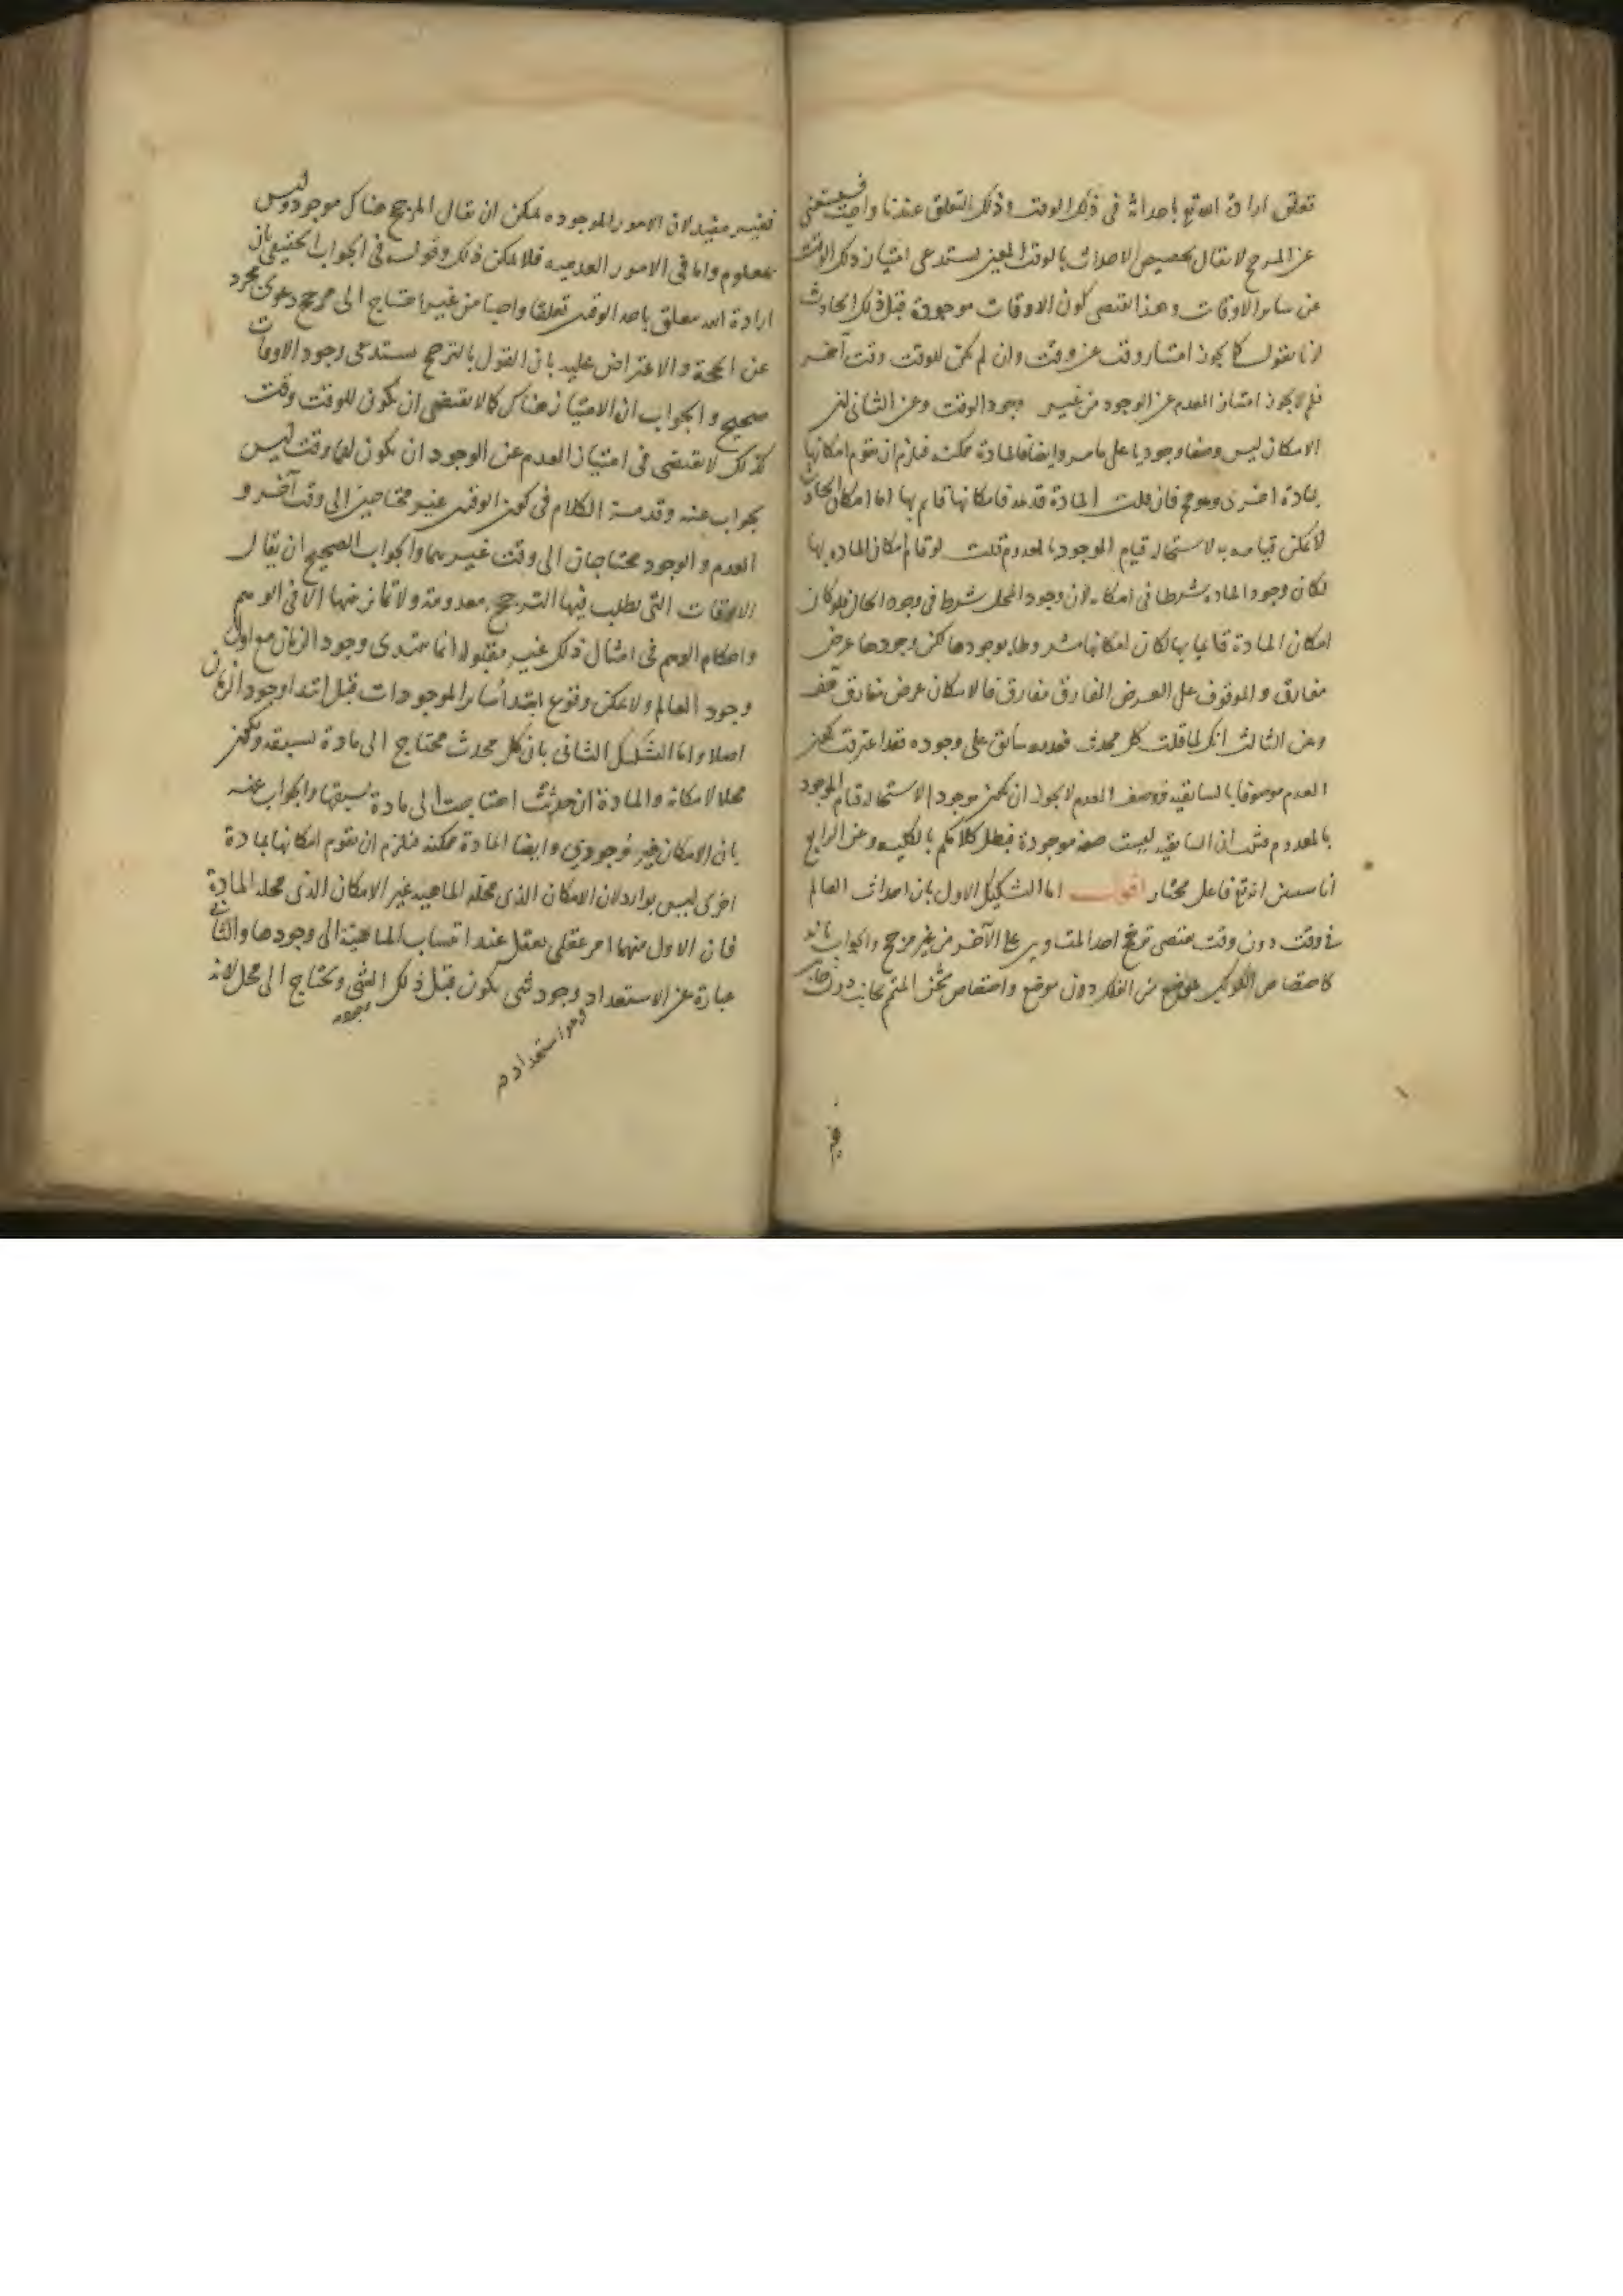 تعلق ارادة الله تع باحداثه فى ذلك الوقت و ذلك التعلق عندنا واجب فيستغنى
عن المرجح لا يقال تخصيص الاحداث بالوقت المعين يستدعى امتياز ذلك الوقت
عن ساير الاوقات و هذا يقتضى كون الاوقات موجودة قبل ذلك الحادث
لانا نقول كما يجوز امتياز وقت عن وقت وان لم يكن للوقت وقت آخر
فلم لا يجوز امتياز العدم عن الوجود من غير وجود الوقت وعن الثانى ان
الامكان ليس وصفا وجوديا على ما مر وايضا فالمادة ممكنه فيلزم ان تقوم امكانها
بمادة اخرى وهو مح فان قلت المادة قديمه فامكانها قايم بها اما امكان الحادث
لا يمكن قيامه به لاستحاله قيام الموجود بالمعدوم قلت لو قام امكان المادة بها
لكان وجود المادة شرطا فى امكانه لان وجود المحل شرط فى وجود الحال فلو كان
امكان المادة قايما بها لكان امكانها مشروطا بوجودها لكن وجودها عرض
مفارق و الموقوف على العرض المفارق مفارق فالامكان عرض مفارق هف
وعن الثالث انك لما قلت كل محدث فعدمه سابق على وجوده فقد اعترفت بكون
العدم موصوفا بالسابقيه فوصف العدم لا يجوز ان يكون موجودا لاستحاله قيام الموجود
بالمعدوم فثبت ان السابقيه ليست صفه موجودة فبطل كلامكم بالكليه وعن الرابع
انا سنبين انه تع فاعل مختار اقول اما التشكيك الاول بان احداث العالم
فى وقت دون وقت يقتضى ترجح احد المتساويين على الآخر من غير مرجح والجواب بانه
كاختصاص الكوكب بموضع من الفلك دون موضع واختصاص ثخن المتمم بجانب دون جانب
فغير مفيد لان الامور الموجوده يمكن ان يقال المرجح هناك موجود وليس
بمعلوم واما فى الامور العدميه فلا يمكن ذلك وقوله فى الجواب الحقيقى بان
ارادة الله تتعلق باحد الوقتين تعلقا واجبا من غير احتياج الى مرجح دعوى مجرد
عن الحجة و الاعتراض عليه بان القول بالترجح يستدعى وجود الاوقات
صحيح و الجواب ان الامتياز هناك كما لا يقتضى ان يكون للوقت وقت
كذلك لا يقتضى فى امتياز العدم عن الوجود ان يكون لهما وقت ليس
بجواب عنه وقد مر الكلام فى كون الوقتين غير محتاجين الى وقت آخر و
العدم و الوجود محتاجان الى وقت غيرهما والجواب الصحيح ان يقال
الاوقات التى يطلب فيها الترجح معدومة ولا تمايز بينها الا فى الوهم
واحكام الوهم فى امثال ذلك غير مقبوله انما يبتدى وجود الزمان مع اول
وجود العالم ولا يمكن وقوع ابتدا ساير الموجودات قبل ابتدا وجود الزمان
اصلا واما التشكيك الثانى بان كل محدث محتاج الى مادة تسبقه وتكون
محلا لامكانه والمادة ان حدثت احتاجت الى مادة تسبقها والجواب عنه
بان الامكان غير وجودي وايضا المادة ممكنه فيلزم ان تقوم امكانها بمادة
اخرى ليس بوارد لان الامكان الذى محله الماهيه غير الامكان الذى محله المادة
فان الاول منهما امر عقلى يعقل عند انتساب الماهية الى وجودها والثانى
عبارة عن الاستعداد وجود شى يكون قبل ذلك الشى ويحتاج الى محل لانه
وهو استعداده